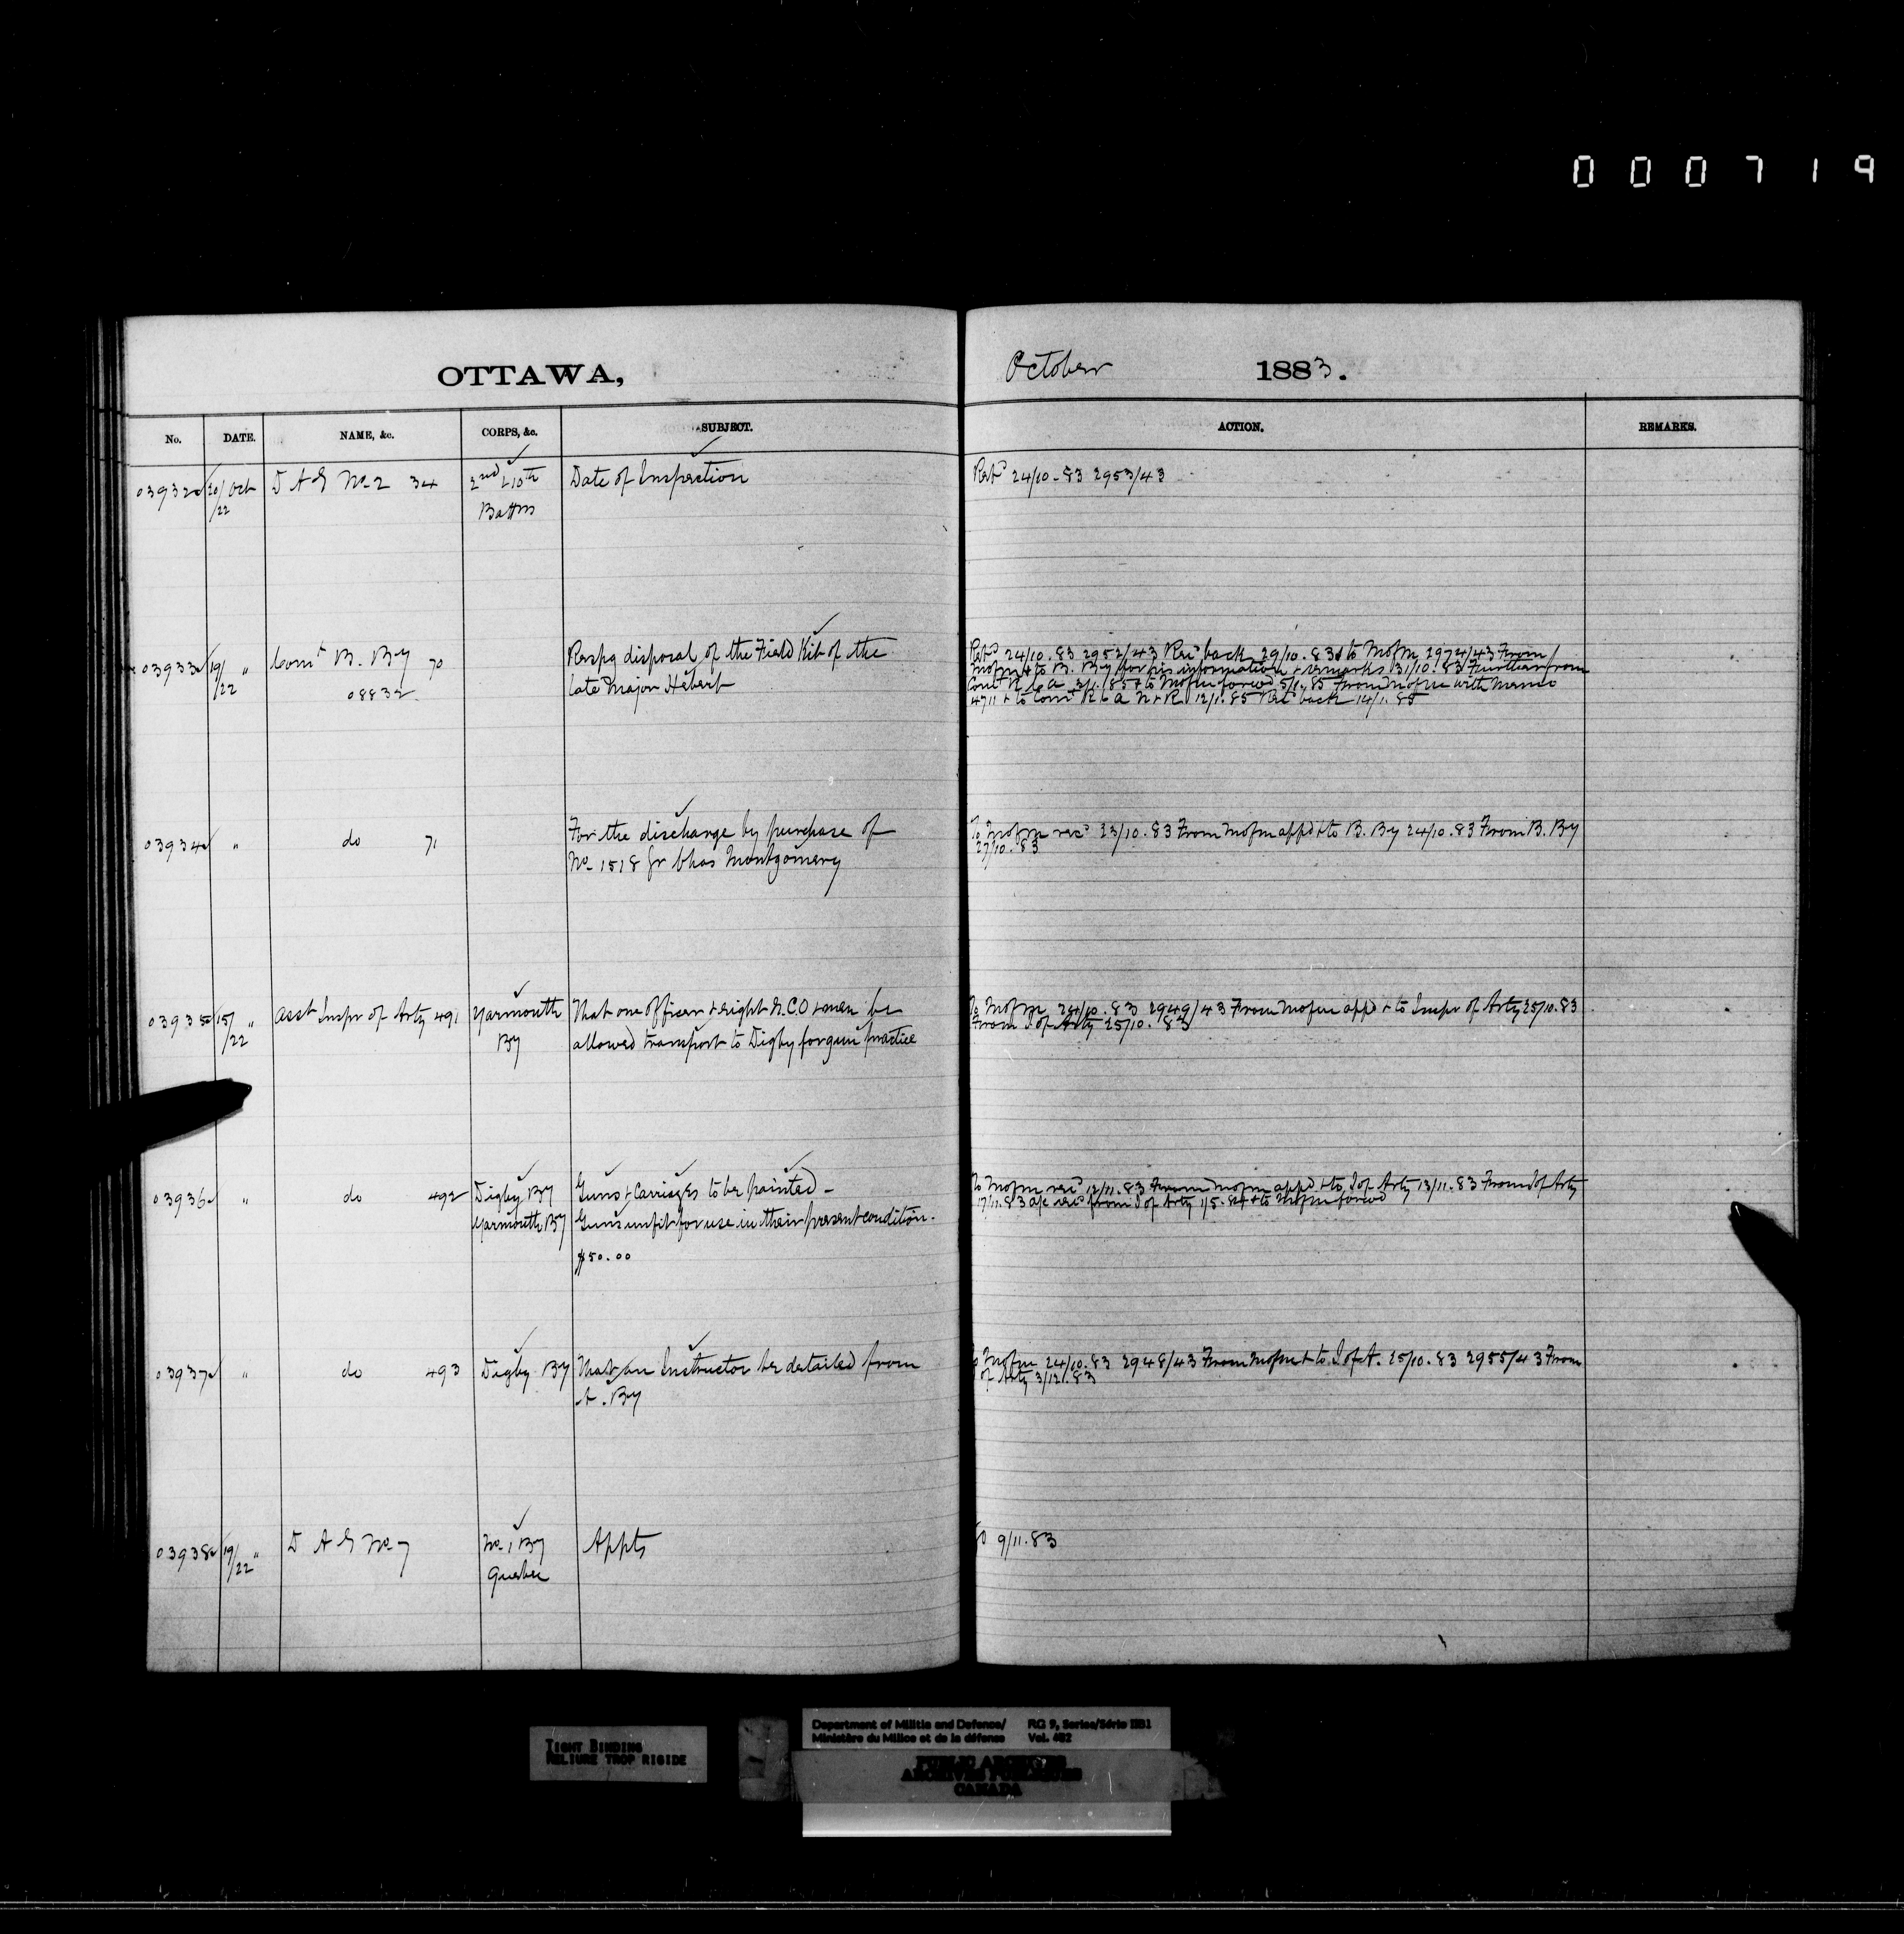 000719
OTTAWA,
October 1883.
No. DATE. NAME, &c. CORPS, &c. SUBJECT. ACTION. REMARKS.
03932 20/22 Oct D A G No 2 34 2nd & 10th Battns Date of Inspection
Retd 24/10.83 2953/43
03933 19/22 " Comt B. By 70
08832
Respg disposal of the Field Kit of the
late Major Hebert
Retd 24/10.83 2952/43 Recd back 29/10.83 & to MofM 2974/43 From
MofM & to B. By for his information & remarks 31/10.83 Further from
Comt R C A 3/1.85 & to Mofm forwd 5/1.85 From Mofm with memo
4711 & to Comt R C A N & R 12/1.85 Recd back 14/1.85
03934 " do 71
For the discharge by purchase of
No 1518 Gr Chas Montgomery
To Mofm recd 23/10.83 From Mofm appd & to B. By 24/10.83 From B. By
27/10.83
03935 15/22 " Asst Inspr of Arty 491 Yarmouth By
That one officer & eight N.C.O & men be
allowed transport to Digby for gun practice
To Mofm 24/10.83 2949/43 From Mofm appd & to Inspr of Arty 25/10.83
From I of Arty 25/10.83
03936 " do 492 Digby By
Yarmouth By
Guns & Carriages to be painted –
Guns unfit for use in their present condition.
$50.00
To Mofm recd 12/11.83 From Mofm appd & to I of Arty 13/11.83 From I of Arty
17/11.83 a/c recd from I of Arty 1/5.84 & to Mofm forwd
03937 " do 493 Digby By
That an Instructor be detailed from
A. By
Mofm 24/10.83 2948/43 From Mofm & to I of A. 25/10.83 2955/43 From
of Arty 3/12.83
03938 19/22 " D A G No 7 No 1 By
Quebec
Appts
9/11.83
TIGHT BINDING
RELIURE TROP RIGIDE
Department of Militia and Defence/
Ministère du Milice et de la défense
RG 9, Series/Série IIB1
Vol. 482
PUBLIC ARCHIVES
ARCHIVES PUBLIQUES
CANADA